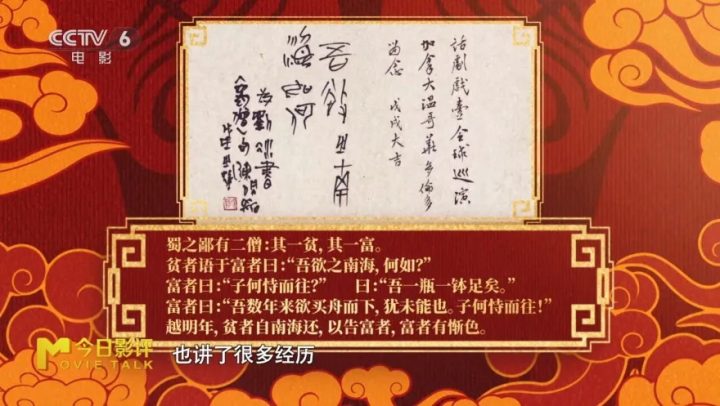 CCTV 6
电影
话剧戏台全球巡演
加拿大温哥华多伦多
留念 戊戌大吉
吾欲之南
海如何
蜀之鄙有二僧:其一贫,其一富。
贫者语于富者曰:“吾欲之南海,何如?”
富者曰:“子何恃而往?” 曰:“吾一瓶一钵足矣。”
富者曰:“吾数年来欲买舟而下,犹未能也。子何恃而往!”
越明年,贫者自南海还,以告富者,富者有惭色。
今日影评
MOVIE TALK
也讲了很多经历